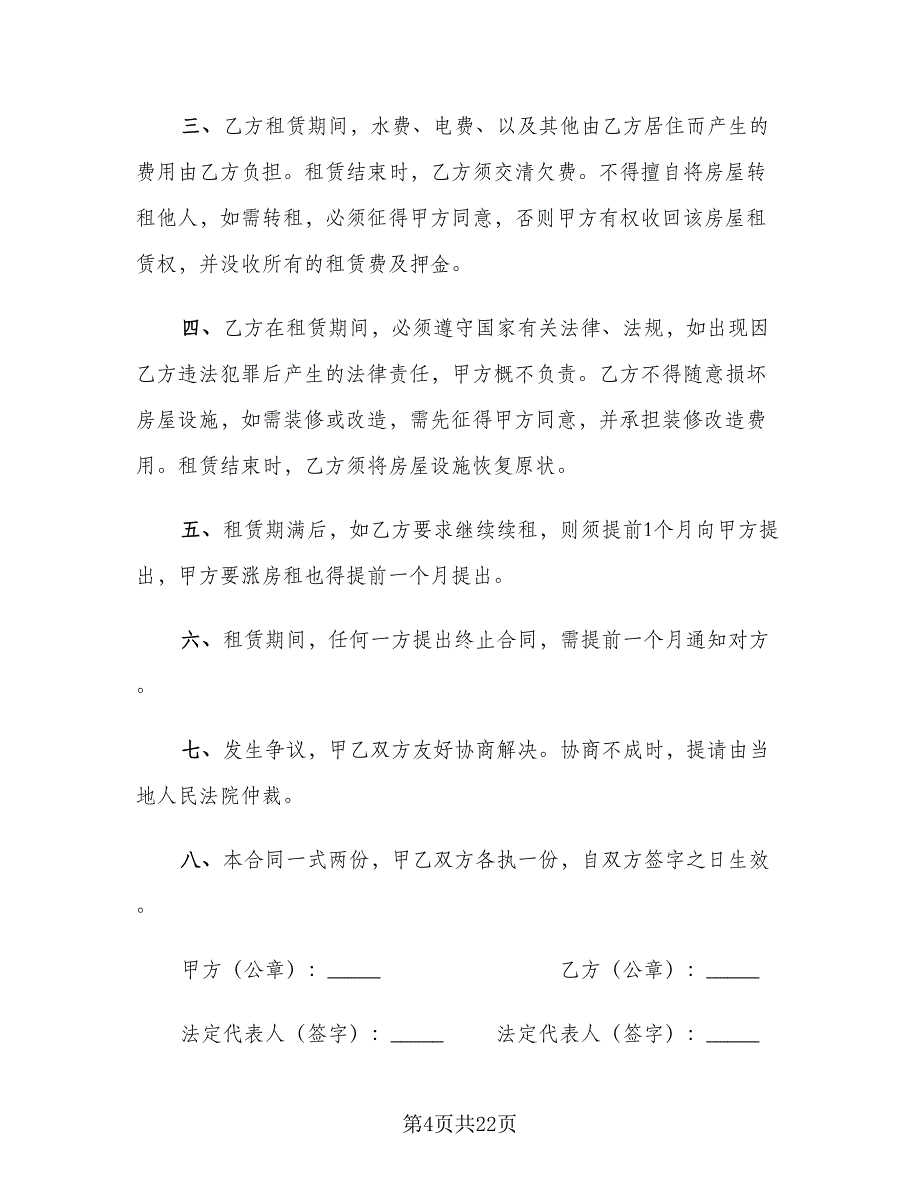 三、乙方租赁期间，水费、电费、以及其他由乙方居住而产生的
费用由乙方负担。租赁结束时，乙方须交清欠费。不得擅自将房屋转
租他人，如需转租，必须征得甲方同意，否则甲方有权收回该房屋租
赁权，并没收所有的租赁费及押金。
四、乙方在租赁期间，必须遵守国家有关法律、法规，如出现因
乙方违法犯罪后产生的法律责任，甲方概不负责。乙方不得随意损坏
房屋设施，如需装修或改造，需先征得甲方同意，并承担装修改造费
用。租赁结束时，乙方须将房屋设施恢复原状。
五、租赁期满后，如乙方要求继续续租，则须提前1个月向甲方提
出，甲方要涨房租也得提前一个月提出。
六、租赁期间，任何一方提出终止合同，需提前一个月通知对方
。
七、发生争议，甲乙双方友好协商解决。协商不成时，提请由当
地人民法院仲裁。
八、本合同一式两份，甲乙双方各执一份，自双方签字之日生效
。
甲方（公章）：_____ 乙方（公章）：_____
法定代表人（签字）：_____ 法定代表人（签字）：_____
第4页共22页